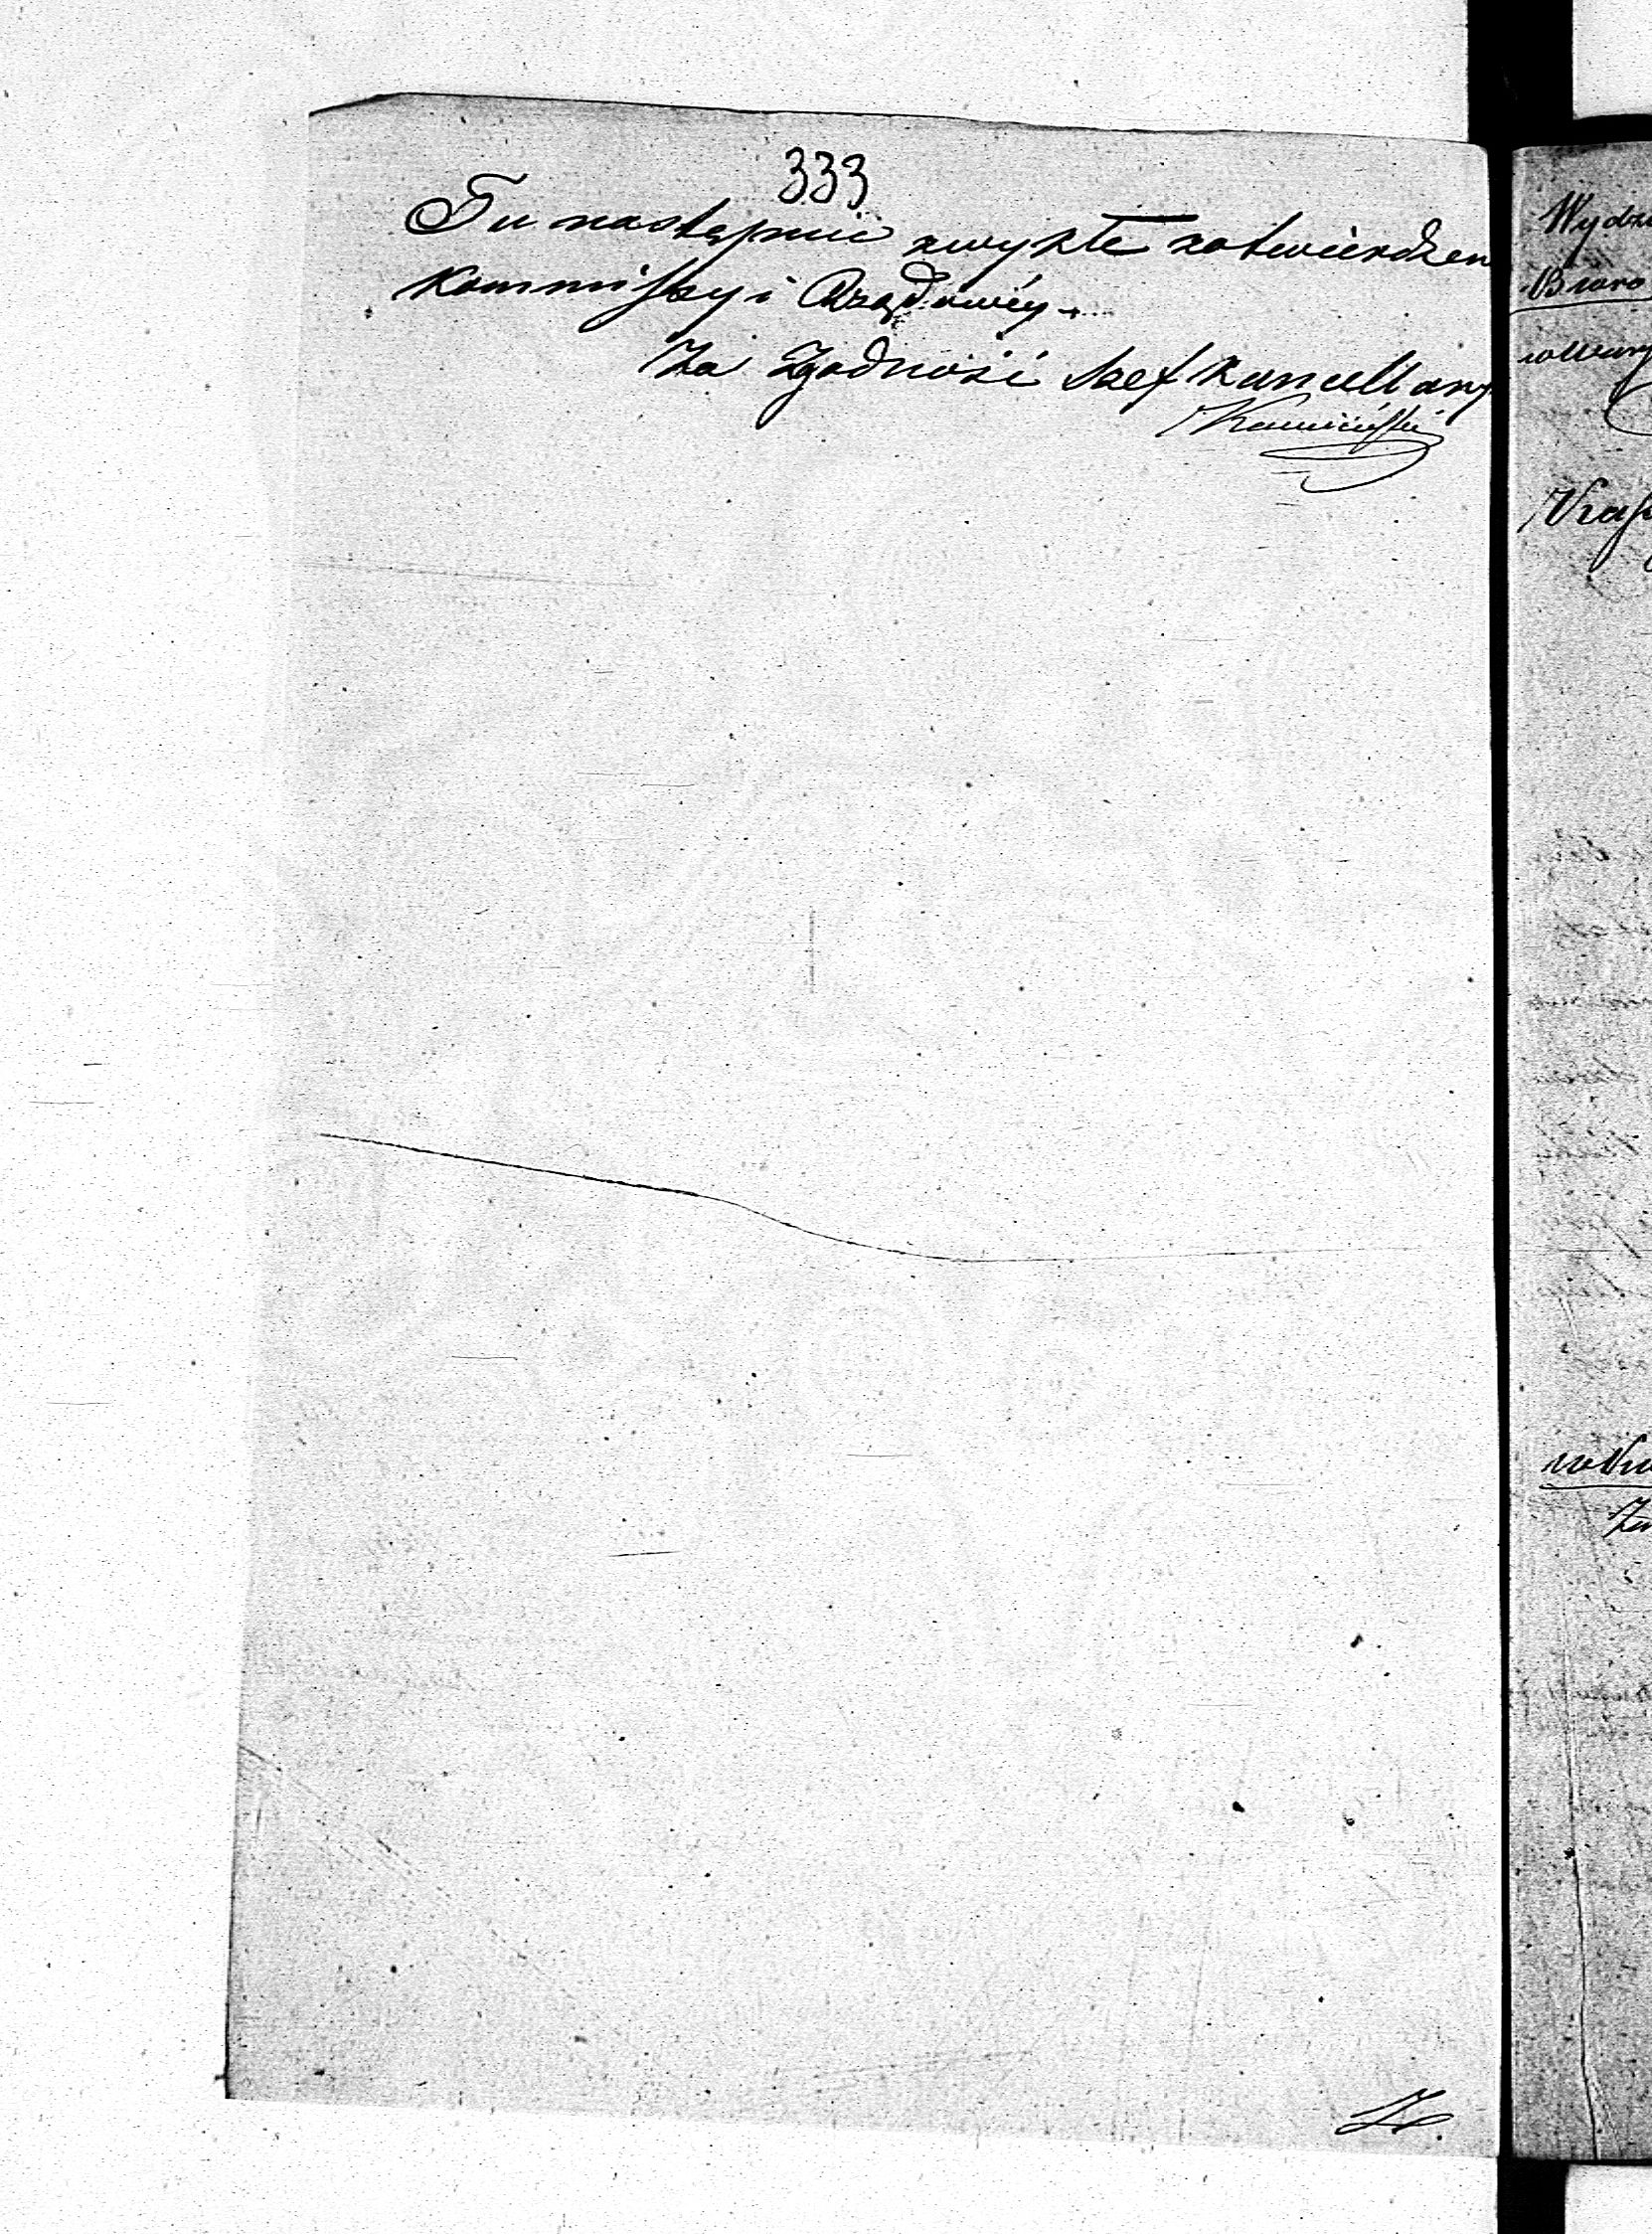 333
Tu nastąpuie zwykłe zatwierdzen
Kommissyi Rządowéy.
Za Zgodność Szef Kancellary
Kamiński
Wydzi
Biuro